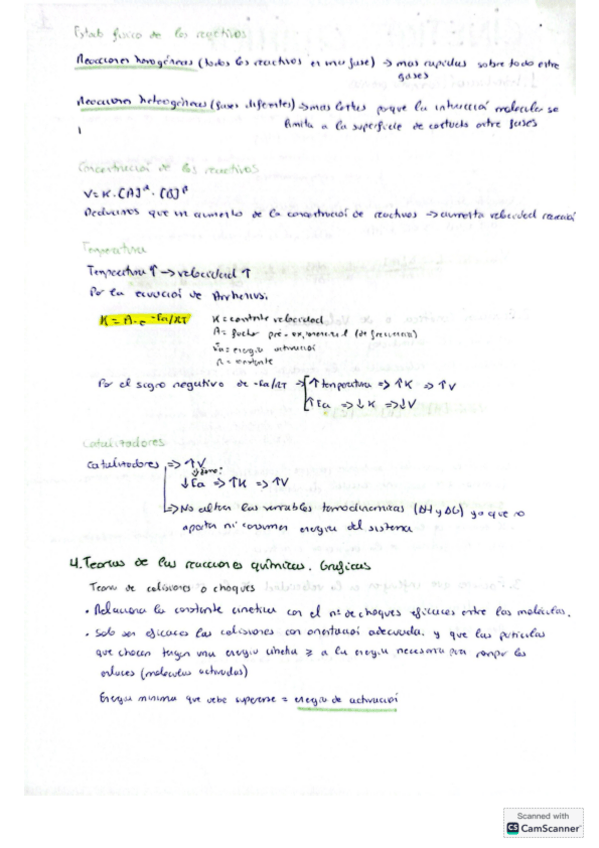 Estado físico de los reactivos
Reacciones homogéneas (todos los reactivos en una fase) → mas rapidas sobre todo entre
gases
Reacciones heterogéneas (fases diferentes) → mas lentas porque la interacción molecular se
limita a la superficie de contacto entre fases
Concentración de los reactivos
V = K · [A]^α · [B]^β
Deducimos que un aumento de la concentración de reactivos → aumenta velocidad reacción
Temperatura
Temperatura ↑ → velocidad ↑
Por la ecuación de Arrhenius:
K = A · e^-Ea/RT
K = constante velocidad
A = factor pre-exponencial (de frecuencia)
Ea = energia activación
R = constante
Por el signo negativo de -Ea/RT → ↑ temperatura ⇒ ↑K ⇒ ↑V
↑Ea ⇒ ↓K ⇒ ↓V
Catalizadores
Catalizadores ⇒ ↑V
↓Ea ⇒ ↑K ⇒ ↑V
⇒ No altera las variables termodinamicas (ΔH y ΔG) ya que no
aportan ni consumen energia del sistema
4. Teorías de las reacciones químicas. Graficas
Teoria de colisiones o choques
• Relaciona la constante cinetica con el nº de choques eficaces entre las moleculas.
• Solo son eficaces las colisiones con orientación adecuada, y que las particulas
que chocan tengan una energia cinetica ≥ a la energia necesaria para romper los
enlaces (moleculas activadas)
Energia minima que debe superarse = energia de activación
Scanned with
CS CamScanner